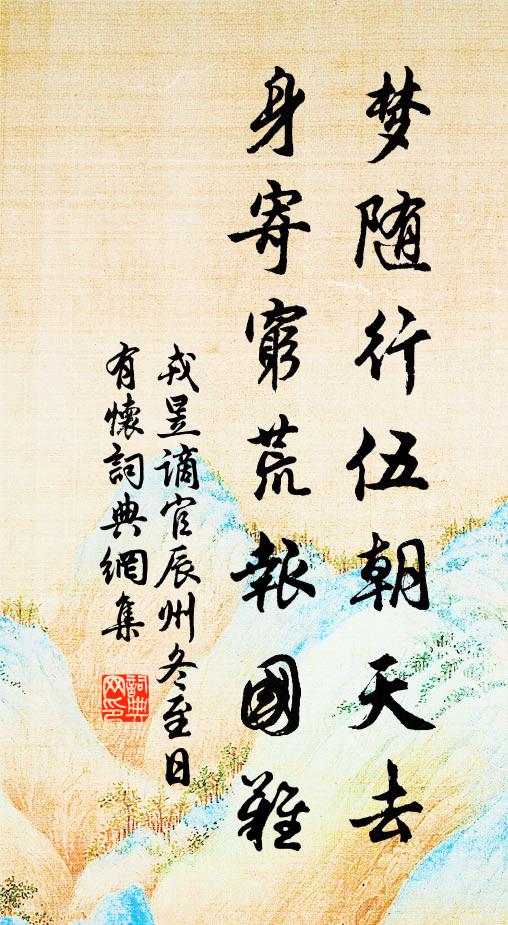 梦随行伍朝天去
身寄窮荒報國難
戎昱谪官辰州冬至日
有懷詞典網集
詞典
网印